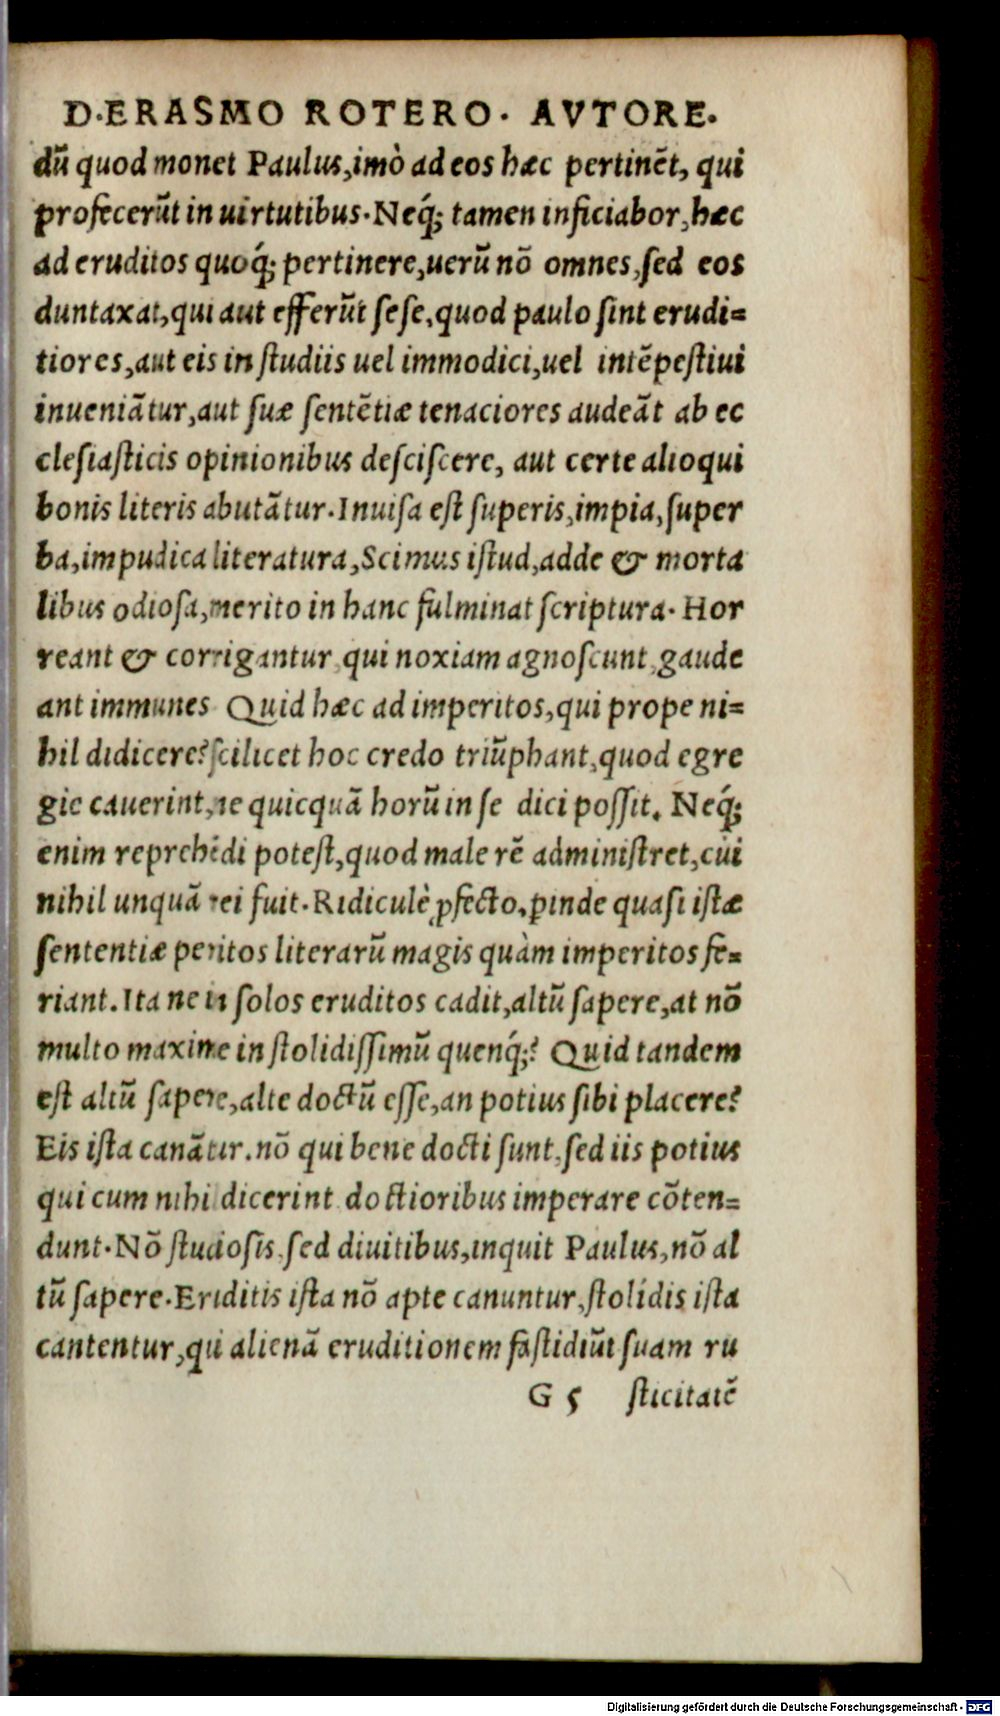 D·ERASMO ROTERO· AVTORE·
dũ quod monet Paulus,imò ad eos hæc pertinẽt, qui
profecerũt in uirtutibus·Neq́; tamen inficiabor,hæc
ad eruditos quoq́; pertinere,uerũ nõ omnes,sed eos
duntaxat,qui aut efferũt sese,quod paulo sint erudi=
tiores,aut eis in studiis uel immodici,uel intẽpestiui
inueniãtur,aut suæ sentẽtiæ tenaciores audeãt ab ec
clesiasticis opinionibus desciscere, aut certe alioqui
bonis literis abutãtur·Inuisa est superis,impia,super
ba,impudica literatura,Scimus istud,adde & morta
libus odiosa,merito in hanc fulminat scriptura· Hor
reant & corrigantur,qui noxiam agnoscunt,gaude
ant immunes Quid hæc ad imperitos,qui prope ni=
hil didicere?scilicet hoc credo triũphant,quod egre
gie cauerint,ne quicquã horũ in se dici possit. Neq́;
enim reprehẽdi potest,quod male rẽ administret,cui
nihil unquã rei fuit·Ridiculè ꝓfecto,ꝑinde quasi istæ
sententiæ peritos literarũ magis quàm imperitos fe=
riant.Ita ne in solos eruditos cadit,altũ sapere,at nõ
multo maxime in stolidissimũ quenq́;? Quid tandem
est altũ sapere,alte doctũ esse,an potius sibi placere?
Eis ista canãtur.nõ qui bene docti sunt,sed iis potius
qui cum nihil dicerint doctioribus imperare cõten=
dunt·Nõ studiosis,sed diuitibus,inquit Paulus,nõ al
tũ sapere·Eruditis ista nõ apte canuntur,stolidis ista
cantentur,qui alienã eruditionem fastidiũt suam ru
G 5 sticitatẽ
Digitalisierung gefördert durch die Deutsche Forschungsgemeinschaft - DFG